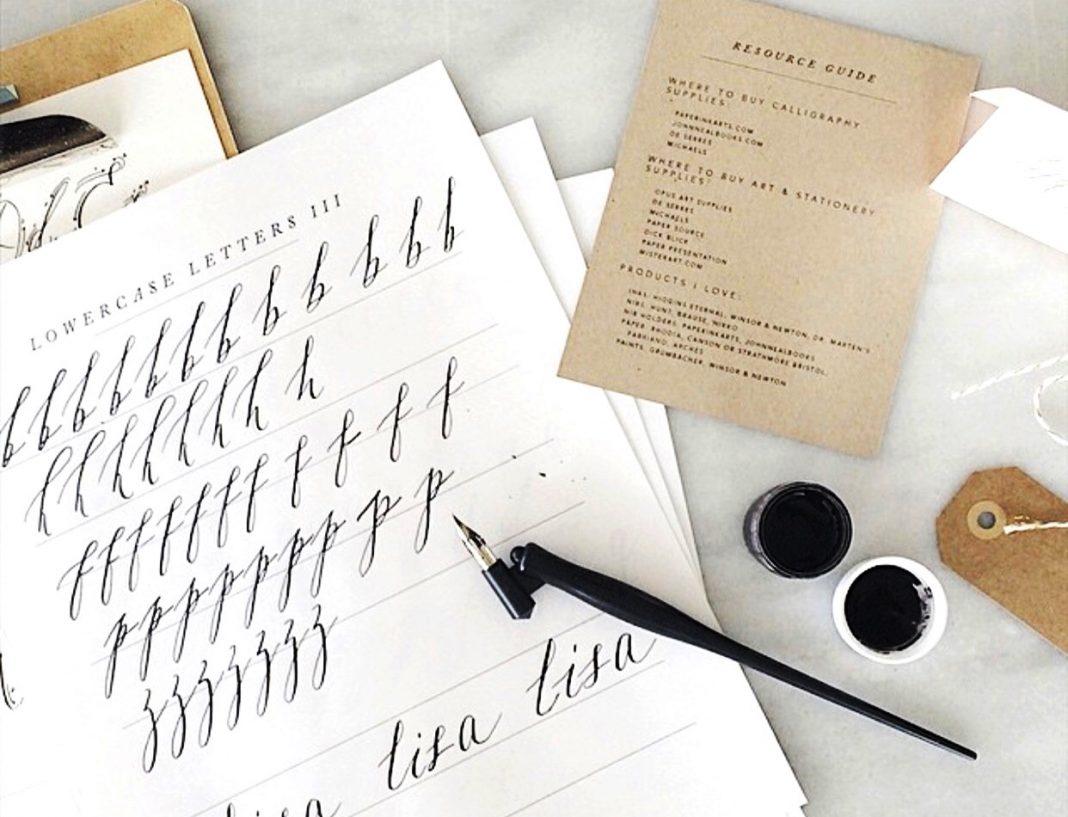 LOWERCASE LETTERS III
b b b b b b b b b b b b
h h h h h h h h
f f f f f f f f f f f
p p p p p p p p p
z z z z z z z
lisa
lisa
lisa
RESOURCE GUIDE
WHERE TO BUY CALLIGRAPHY
SUPPLIES:
PAPERINKARTS.COM
JOHNNEALBOOKS.COM
DE SERRES
MICHAELS
WHERE TO BUY ART & STATIONERY
SUPPLIES:
OPUS ART SUPPLIES
DE SERRES
MICHAELS
PAPER SOURCE
DICK BLICK
PAPER PRESENTATION
MISTERART.COM
PRODUCTS I LOVE:
INKS: HIGGINS ETERNAL, WINSOR & NEWTON, DR. MARTEN'S
NIBS: HUNT, BRAUSE, NIKKO
NIB HOLDERS: PAPERINKARTS, JOHNNEALBOOKS
PAPER: RHODIA, CANSON OR STRATHMORE BRISTOL,
FABRIANO, ARCHES
PAINTS: GRUMBACHER, WINSOR & NEWTON